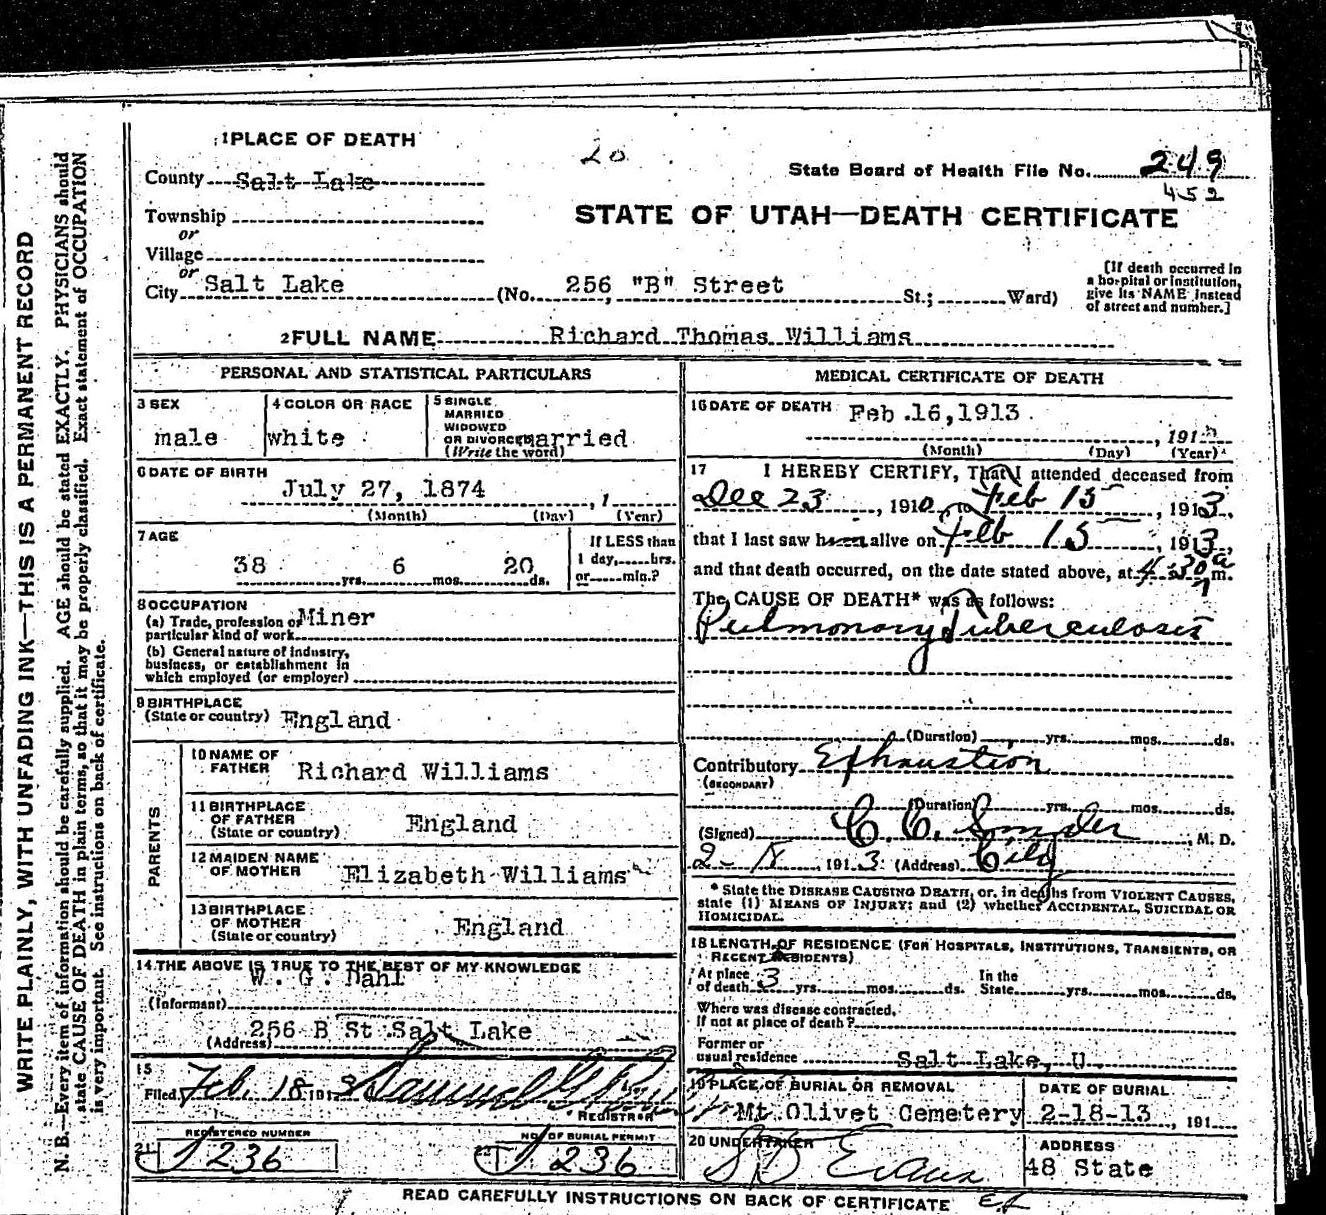 WRITE PLAINLY, WITH UNFADING INK—THIS IS A PERMANENT RECORD
N. B.—Every item of information should be carefully supplied. AGE should be stated EXACTLY. PHYSICIANS should
state CAUSE OF DEATH in plain terms, so that it may be properly classified. Exact statement of OCCUPATION
is very important. See instructions on back of certificate.
1 PLACE OF DEATH
20
County Salt Lake
State Board of Health File No. 249
452
Township
or
STATE OF UTAH—DEATH CERTIFICATE
Village
or
City Salt Lake (No. 256 "B" Street St.; Ward)
[If death occurred in
a hospital or institution,
give its NAME instead
of street and number.]
2 FULL NAME Richard Thomas Williams
PERSONAL AND STATISTICAL PARTICULARS
3 SEX
male
4 COLOR OR RACE
white
5 SINGLE
MARRIED
WIDOWED
OR DIVORCED married
(Write the word)
6 DATE OF BIRTH
July 27, 1874 , 1
(Month) (Day) (Year)
7 AGE
38 yrs. 6 mos. 20 ds.
If LESS than
1 day, hrs.
or min.?
8 OCCUPATION
(a) Trade, profession or Miner
particular kind of work
(b) General nature of industry,
business, or establishment in
which employed (or employer)
9 BIRTHPLACE
(State or country) England
PARENTS
10 NAME OF
FATHER Richard Williams
11 BIRTHPLACE
OF FATHER
(State or country) England
12 MAIDEN NAME
OF MOTHER Elizabeth Williams
13 BIRTHPLACE
OF MOTHER
(State or country) England
14 THE ABOVE IS TRUE TO THE BEST OF MY KNOWLEDGE
W. G. Dahl
(Informant)
256 B St Salt Lake
(Address)
15
Filed Feb. 18 1913 Samuel G
REGISTRAR
REGISTERED NUMBER
21 236
NO. OF BURIAL PERMIT
236
MEDICAL CERTIFICATE OF DEATH
16 DATE OF DEATH Feb.16,1913
, 191
(Month) (Day) (Year)
17 I HEREBY CERTIFY, That I attended deceased from
Dec 23, 1910, to Feb 15, 1913,
that I last saw h alive on Feb 15, 1913,
and that death occurred, on the date stated above, at 4:30 a m.
The CAUSE OF DEATH* was as follows:
Pulmonary Tuberculosis
(Duration) yrs. mos. ds.
Contributory Exhaustion
(SECONDARY)
(Duration) yrs. mos. ds.
(Signed) C. C. Snyder, M. D.
2-18, 1913 (Address) City
* State the DISEASE CAUSING DEATH, or, in deaths from VIOLENT CAUSES,
state (1) MEANS OF INJURY; and (2) whether ACCIDENTAL, SUICIDAL OR
HOMICIDAL.
18 LENGTH OF RESIDENCE (FOR HOSPITALS, INSTITUTIONS, TRANSIENTS, OR
RECENT RESIDENTS)
At place
of death 3 yrs. mos. ds.
In the
State yrs. mos. ds.
Where was disease contracted,
If not at place of death?
Former or
usual residence Salt Lake, U.
19 PLACE OF BURIAL OR REMOVAL
Mt Olivet Cemetery
DATE OF BURIAL
2-18-13, 191
20 UNDERTAKER
S D Evans
ADDRESS
48 State
READ CAREFULLY INSTRUCTIONS ON BACK OF CERTIFICATE